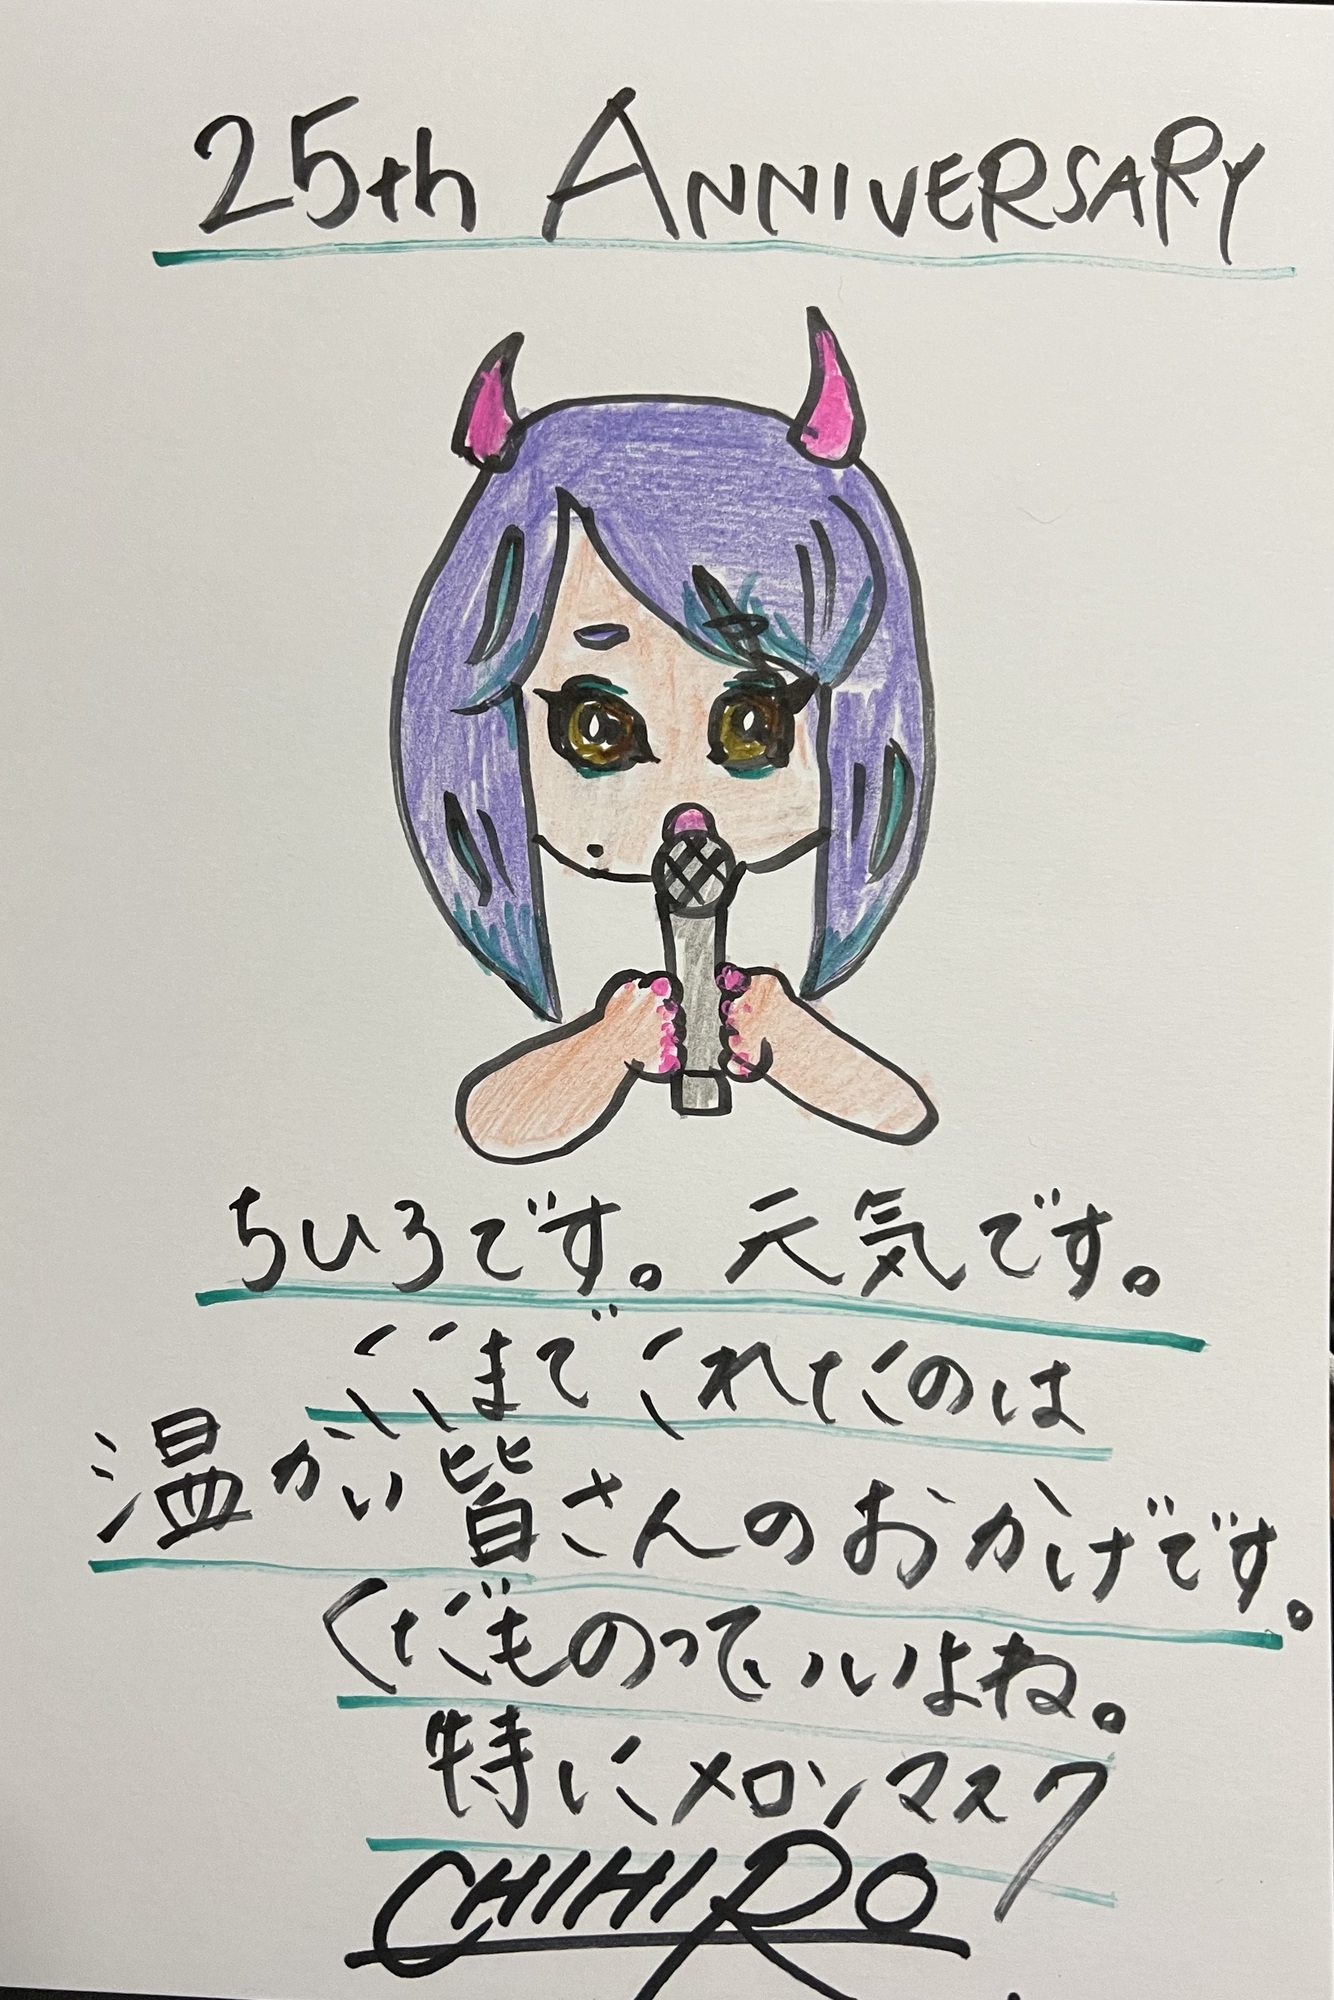 25th ANNIVERSARY
ちひろです。元気です。
ここまでこれたのは
温かい皆さんのおかげです。
くだものっていいよね。
特にメロンマスク
CHIHIRO